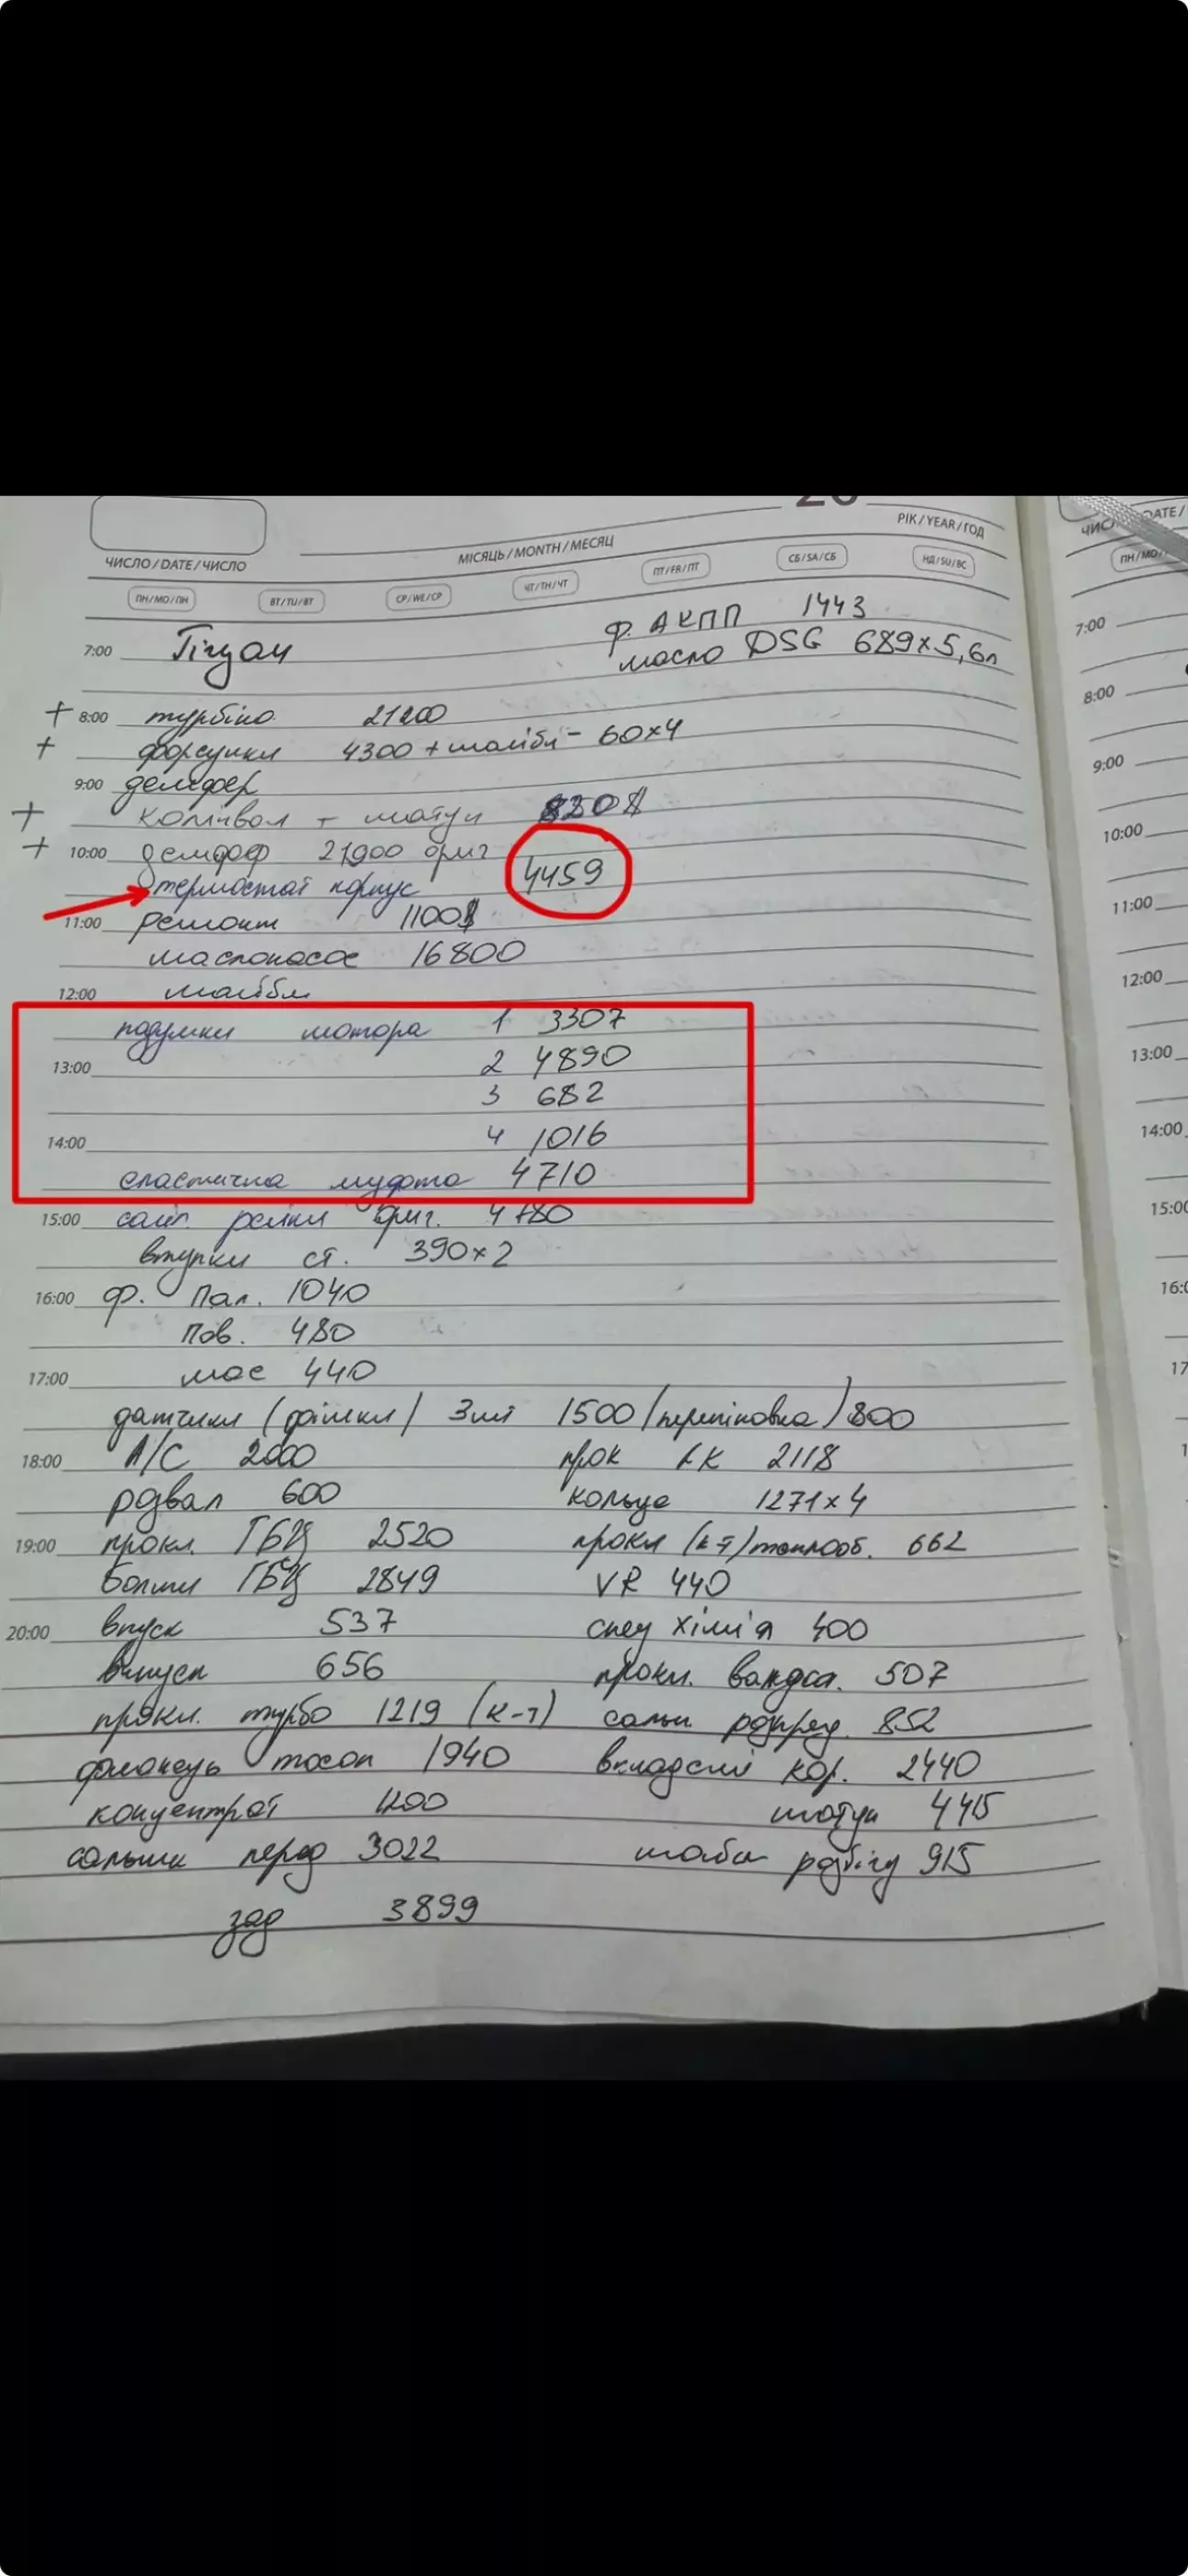 20
РІК/YEAR/ГОД
ЧИСЛО/DATE/ЧИСЛО
МІСЯЦЬ/MONTH/МЕСЯЦ
ПН/MO/ПН ВТ/TU/ВТ СР/WE/СР ЧТ/TH/ЧТ ПТ/FR/ПТ СБ/SA/СБ НД/SU/ВС
ф. АКПП 1443
7:00 Тігуан масло DSG 689x5,6л
+ 8:00 турбіна 21200
+ форсунки 4300 + шайби - 60x4
9:00 демфер
+ колінвал + шатун 820$
+ 10:00 демфер 21900 ориг
термостат корпус 4459
11:00 ремонт 1100$
маслонасос 16800
12:00 шайби
подушки мотора 1 3307
13:00 2 4890
3 682
14:00 4 1016
еластична муфта 4710
15:00 сайл. рейки ориг. 4780
втулки ст. 390x2
16:00 ф. Пал. 1040
Пов. 480
17:00 мас 440
датчики (фішки) 3шт 1500 (перепіновка) 800
18:00 A/C 2000 прок КК 2118
розвал 600 кольца 1271x4
19:00 прокл. ГБЦ 2520 прокл (к-т) теплооб. 662
болти ГБЦ 2849 VR 440
20:00 впуск 537 спец хімія 400
випуск 656 прокл. 507
прокл. турбо 1219 (к-т) сальн розпред. 852
фланець тосол 1940 вкладиші кор. 2440
концентрат 1200 шатун 4415
сальник перед 3022 шайби розбігу 915
зад 3899
ЧИС DATE/
ПН/MO/
7:00
8:00
9:00
10:00
11:00
12:00
13:00
14:00
15:00
16:0
17